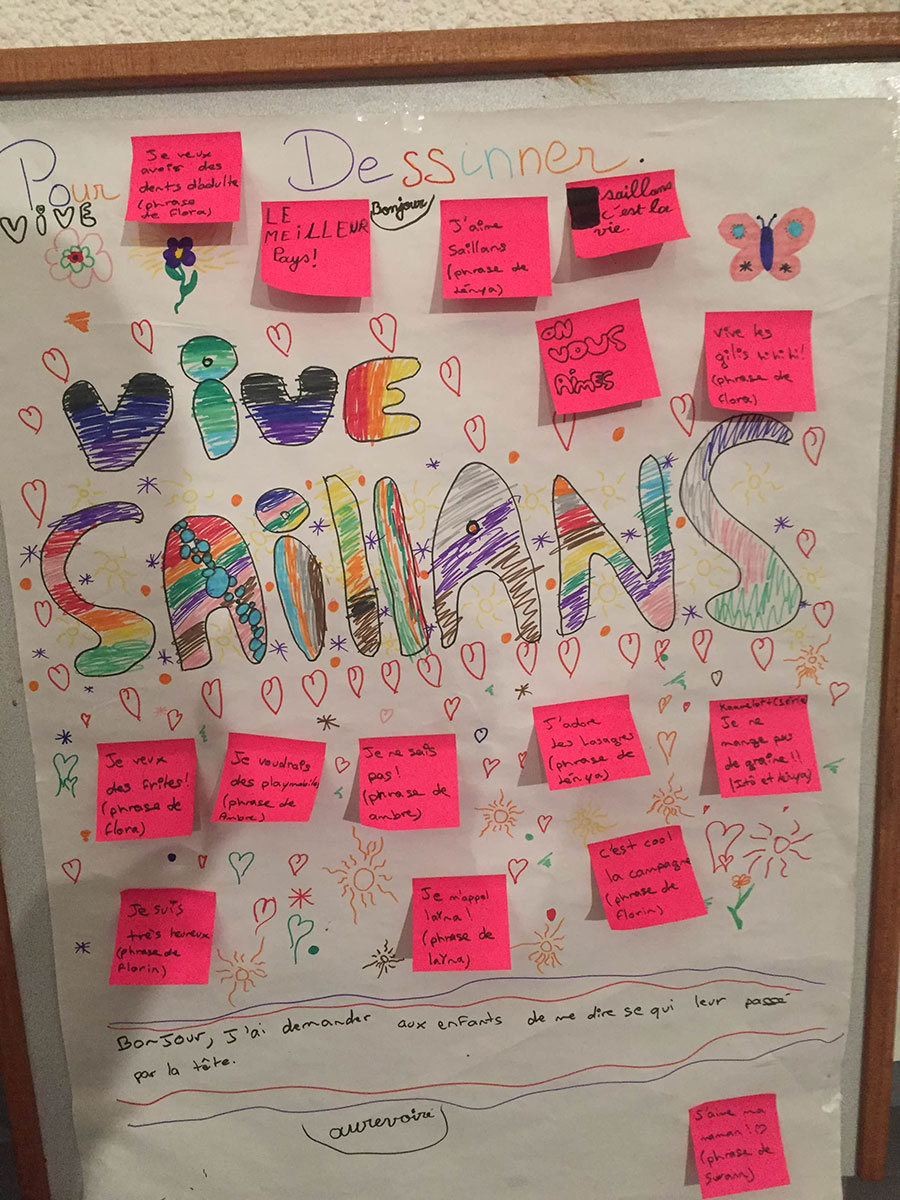 Pour Dessinner.
VIVE
Je veux
avoir des
dents d'adulte
(phrase
de Flora)
LE
MEILLEUR
Pays!
Bonjour
J'aime
Saillans
(phrase de
saillans
c'est la
vie.
ON
VOUS
AIMES
Vive les
hihihi!
(phrase de
flora)
VIVE
SAillANS
Je veux
des frites!
(phrase de
flora)
Je voudrais
des playmobiles
(phrase de
Ambre)
Je ne sais
pas!
(phrase de
ambre)
J'adore
les lasagnes
(phrase de
Je ne
mange pas
de graine!!
Je suis
très heureux
(phrase de
florin)
Je m'appel
laïna!
(phrase de
laïna)
c'est cool
la campagne
(phrase de
florin)
BonJour, J'ai demander aux enfants de me dire se qui leur passé
par la tête.
aurevoire
J'aime ma
maman!♡
(phrase de